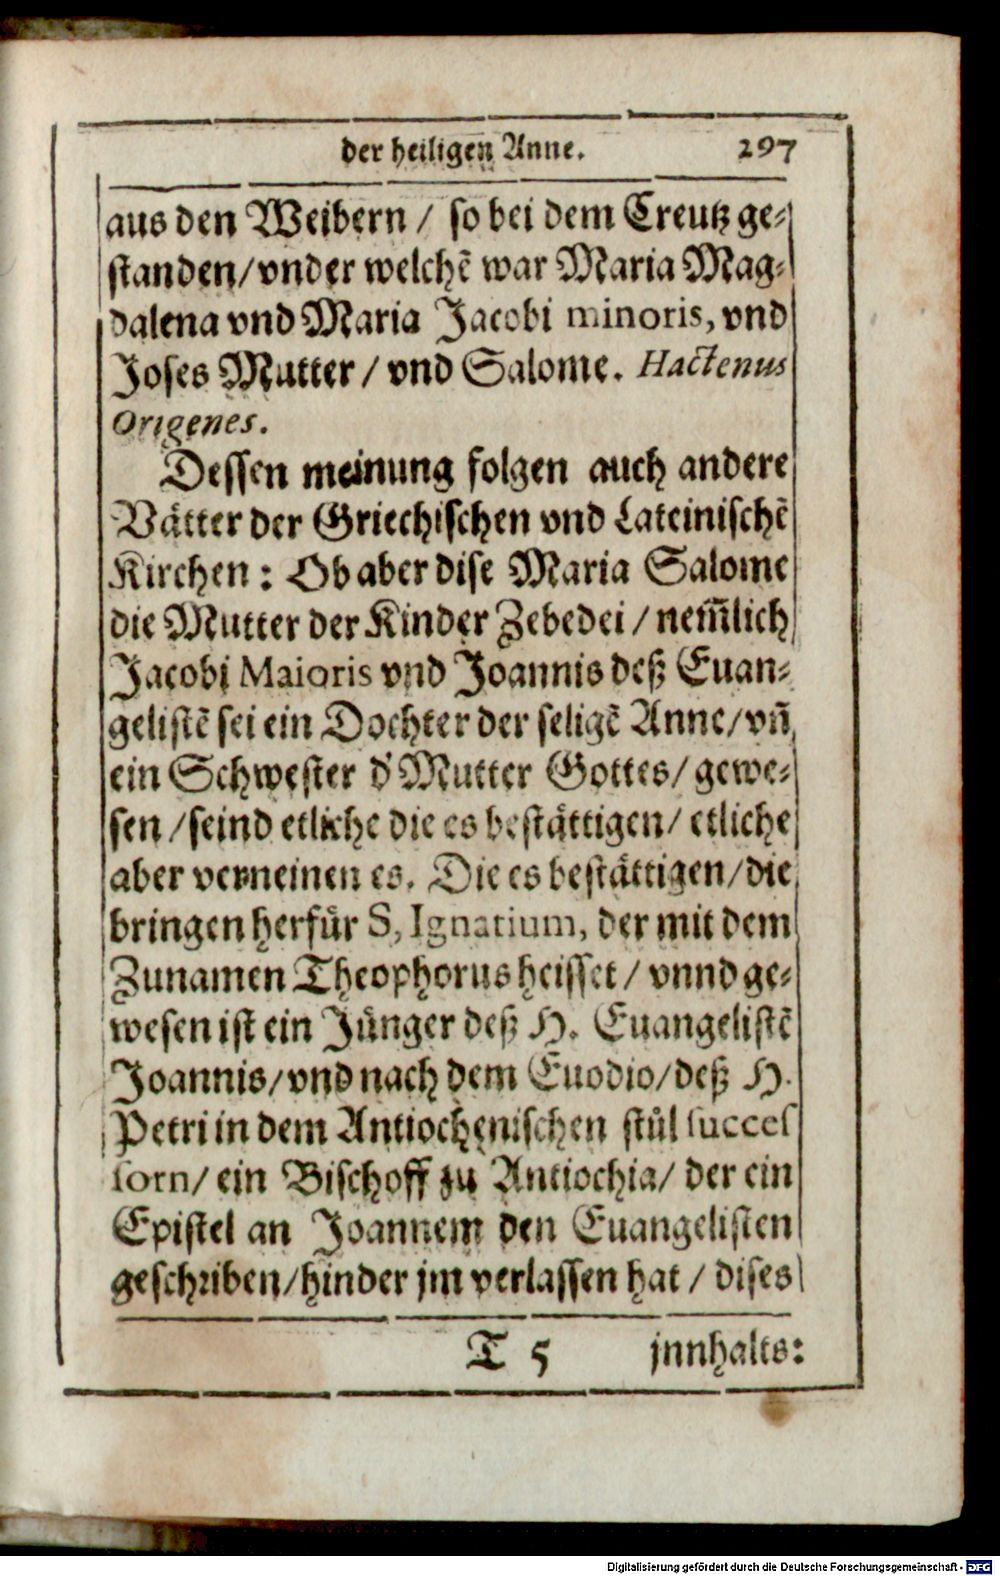 der heiligen Anne. 297
aus den Weibern / so bei dem Creutz ge-
standen/vnder welchẽ war Maria Mag-
dalena vnd Maria Jacobi minoris, vnd
Joses Mutter / vnd Salome. Hactenus
Origenes.
Dessen meinung folgen auch andere
Vätter der Griechischen vnd Lateinischẽ
Kirchen: Ob aber dise Maria Salome
die Mutter der Kinder Zebedei / nem̃lich
Jacobi Maioris vnd Joannis deß Euan-
gelistẽ sei ein Dochter der seligẽ Anne/vñ
ein Schwester d' Mutter Gottes/ gewe-
sen /seind etliche die es bestättigen/ etliche
aber verneinen es. Die es bestättigen/die
bringen herfür S, Ignatium, der mit dem
Zunamen Theophorus heisset / vnnd ge-
wesen ist ein Jünger deß H. Euangelistẽ
Joannis/vnd nach dem Euodio/deß H.
Petri in dem Antiochenischen stůl succes
sorn/ ein Bischoff zu Antiochia/ der ein
Epistel an Joannem den Euangelisten
geschriben/hinder jm verlassen hat / dises
T 5 jnnhalts:
Digitalisierung gefördert durch die Deutsche Forschungsgemeinschaft - DFG